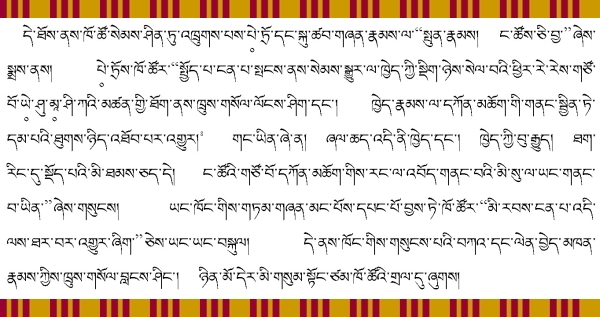 དེ་ཐོས་ནས་ཁོ་ཚོ་སེམས་ཤིན་ཏུ་འཁྲུགས་པས་པེ་ཏྲོ་དང་སྐུ་ཚབ་གཞན་རྣམས་ལ་“སྤུན་རྣམས། ང་ཚོས་ཅི་བྱ་”ཞེས་
སྨྲས་ནས། པེ་ཏྲོས་ཁོ་ཚོར་“སྤྱོད་པ་ངན་པ་སྤངས་ནས་སེམས་སྒྱུར་ལ་ཁྱེད་ཀྱི་སྡིག་ཉེས་སེལ་བའི་ཕྱིར་རེ་རེས་གཙོ་
བོ་ཡེ་ཤུ་མཱ་ཤི་ཀའི་མཚན་གྱི་ཐོག་ནས་ཁྲུས་གསོལ་ལོངས་ཤིག་དང་། ཁྱེད་རྣམས་ལ་དཀོན་མཆོག་གི་གནང་སྦྱིན་ཏེ་
དམ་པའི་ཐུགས་ཉིད་འཐོབ་པར་འགྱུར། གང་ཡིན་ཞེ་ན། ཞལ་ཆད་འདི་ནི་ཁྱེད་དང་། ཁྱེད་ཀྱི་བུ་རྒྱུད། ཐག་
རིང་དུ་སྡོད་པའི་མི་ཐམས་ཅད་དེ། ང་ཚོའི་གཙོ་བོ་དཀོན་མཆོག་གིས་རང་ལ་འབོད་གནང་བའི་མི་སུ་ལ་ཡང་གནང་
བ་ཡིན་”ཞེས་གསུངས། ཡང་ཁོང་གིས་གཏམ་གཞན་མང་པོས་དཔང་པོ་བྱས་ཏེ་ཁོ་ཚོར་“མི་རབས་ངན་པ་འདི་
ལས་ཐར་བར་འགྱུར་ཞིག་”ཅེས་ཡང་ཡང་བསྐུལ། དེ་ནས་ཁོང་གིས་གསུངས་པའི་བཀའ་དང་ལེན་བྱེད་མཁན་
རྣམས་ཀྱིས་ཁྲུས་གསོལ་བླངས་ཤིང་། ཉིན་མོ་དེར་མི་གསུམ་སྟོང་ཙམ་ཁོ་ཚོའི་གྲལ་དུ་ཞུགས།